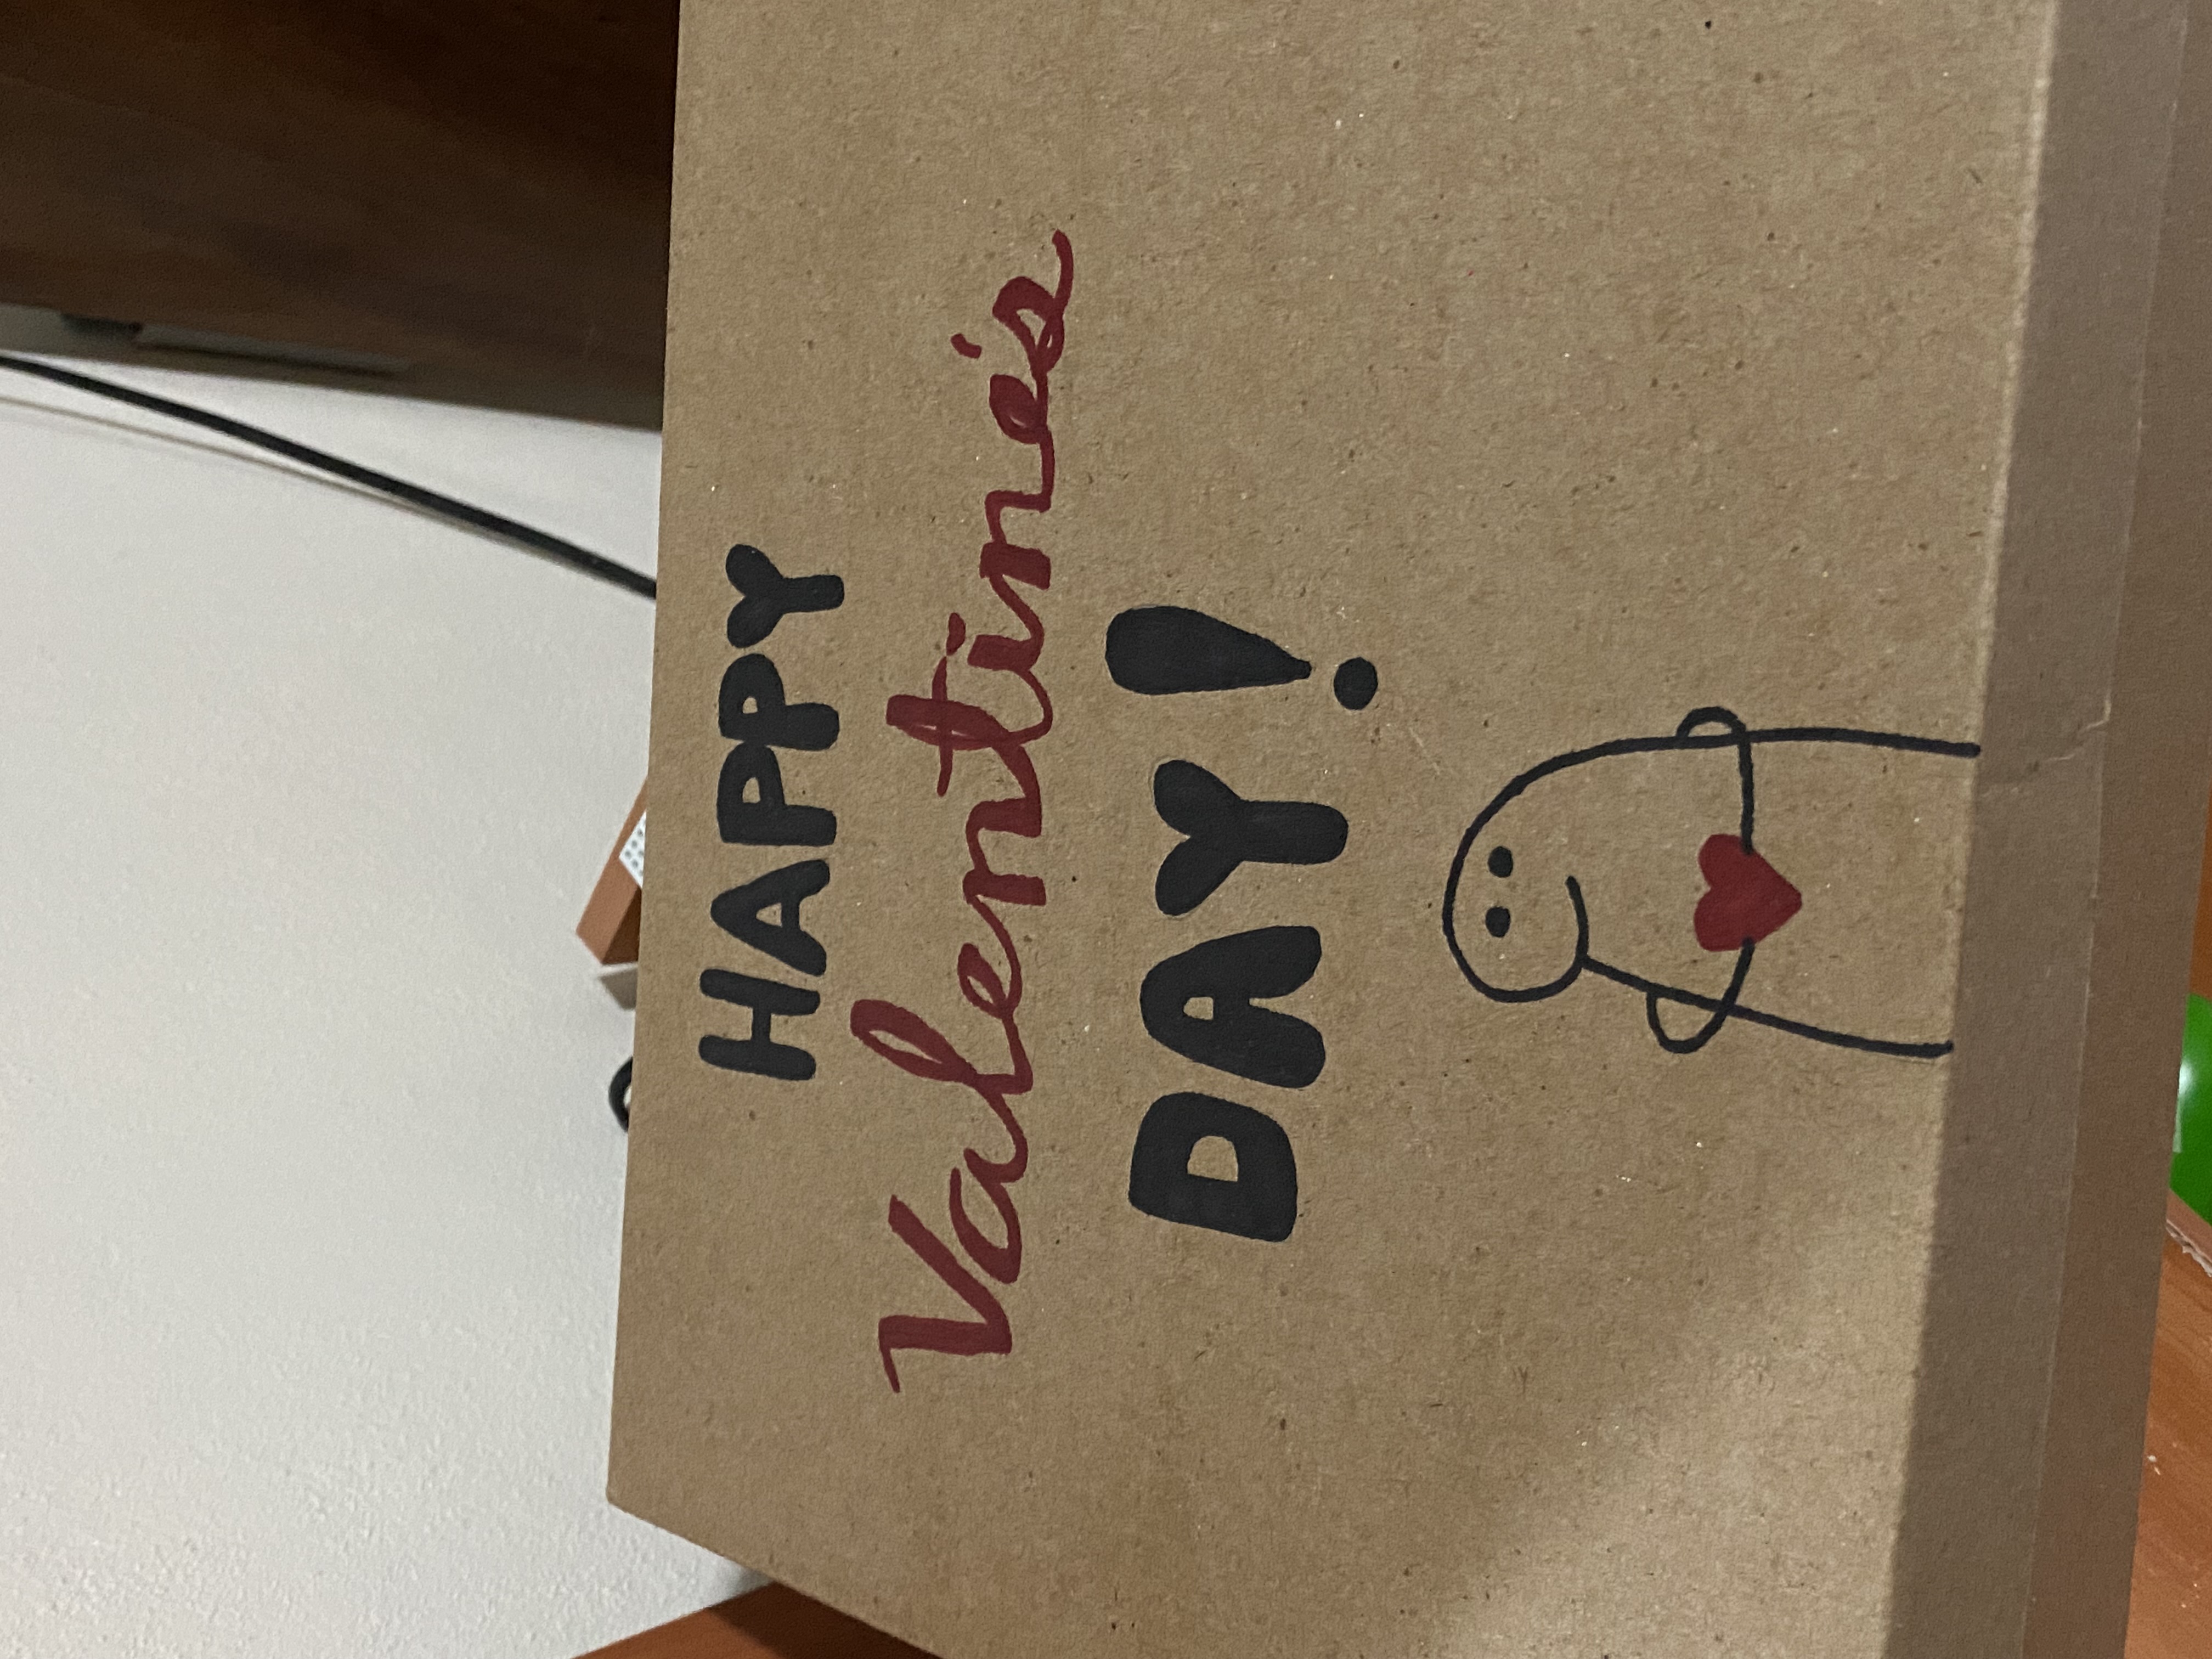 HAPPY
Valentine's
DAY!